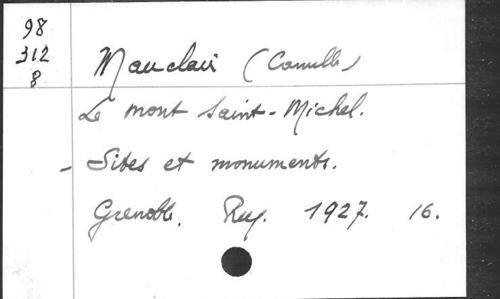 98
312
8
Mauclair (Camille)
Le mont Saint-Michel.
- Sites et monuments.
Grenoble. Rey. 1927. 16.